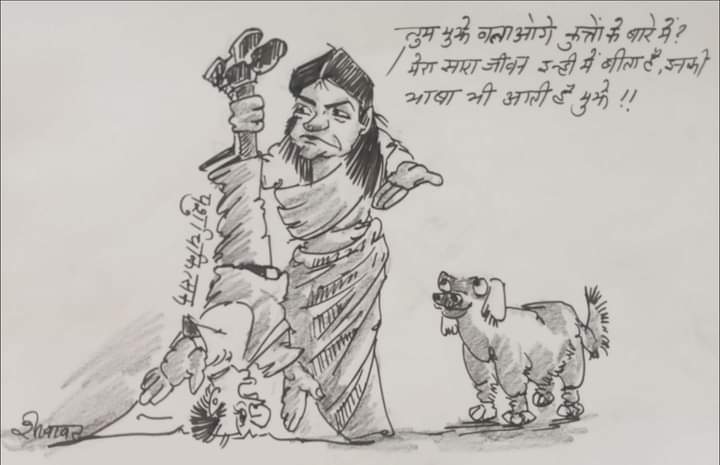 तुम मुझे बताओगे कुत्तों के बारे में?
मेरा सारा जीवन इन्ही में बीता है, इनकी
भाषा भी आती है मुझे !!
शेखावत